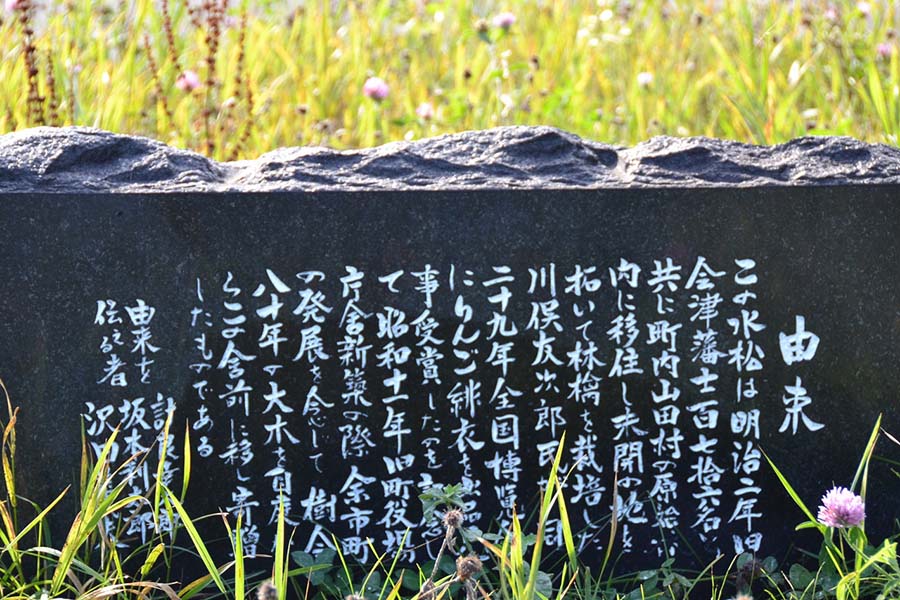 由来
この水松は明治二年旧
会津藩士百七拾六名と
共に町内山田村の原
内に移住し未開の地を
拓いて林檎を栽培した
川俣友次郎氏が同
二十九年全国博覧
にりんご緋衣を
事受賞したのを
て昭和十一年旧町役場
庁舎新築の際余市町
の発展を念じて樹令
八十年の大木を
らこの舎前に移し寄増
したものである
由来を
伝える者
坂本利
沢田